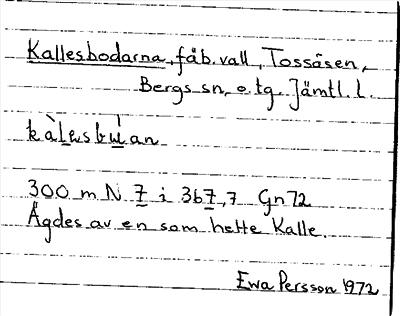 Kallesbodarna, fåb. vall, Tossåsen,
Bergs sn, o. tg. Jämtl. l.
kàlesbu̱ꞌan
300 m N 7 i 3b7,7 Gn 72
Ägdes av en som hette Kalle.
Ewa Persson 1972